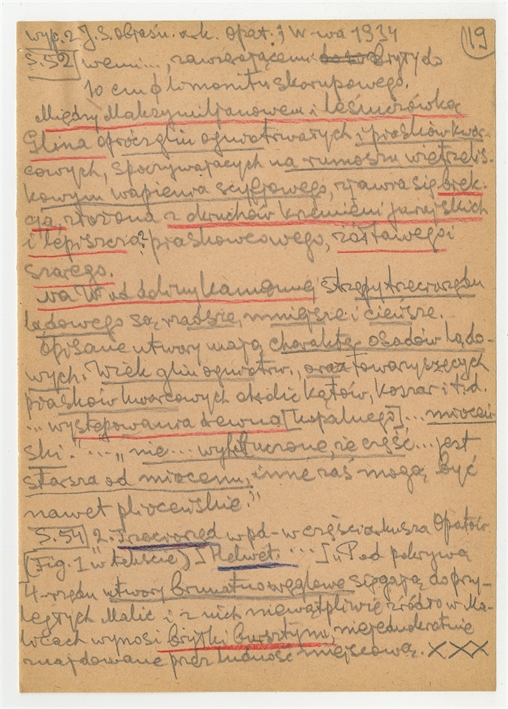 wyp. 2 J. S. Objaśn. ark. Opat. } W-wa 1934
19
S. 52 wemi..., zawierającemi bryły do
10 cm ϕ limonitu skorupowego.
Między Maksymiljanowem i Kaźmirówką
Glina oprócz glin ogniotrwałych i piasków kwar-
cowych, spoczywających na rumoszu wietrzelis-
kowym wapienia scyfjowego, zjawia się brek-
cja, złożona z okruchów krzemieni jurajskich
i lepiszcza? piaskowcowego, żółtawego i
szarego.
Na W od doliny Kamiennej strzępy trzeciorzędu
lądowego są rzadsze, mniejsze i cieńsze.
Opisane utwory mają charakter osadów lądo-
wych. Wiek glin ogniotrw. oraz towarzyszących
piasków kwarcowych okolic Kątów, Koszar i t.d.
... występowania drewna [kopalnego], ... mioceń-
ski. ... "nie... wykluczone, że część... jest
starsza od miocenu, inne zaś mogą być
nawet plioceńskie."
S. 54 "2. Trzeciorzęd w pd-w części arkusza Opatów
(Fig. 1 w tekście) [Helwet. ...] "Pod pokrywą
4-rzędu utwory brunatnowęglowe sięgają do przy-
ległych Malic i z nich niewątpliwie źródło w Ma-
licach wynosi bryłki bursztynu, niejednokrotnie
znajdowane przez ludność miejscową. XXX